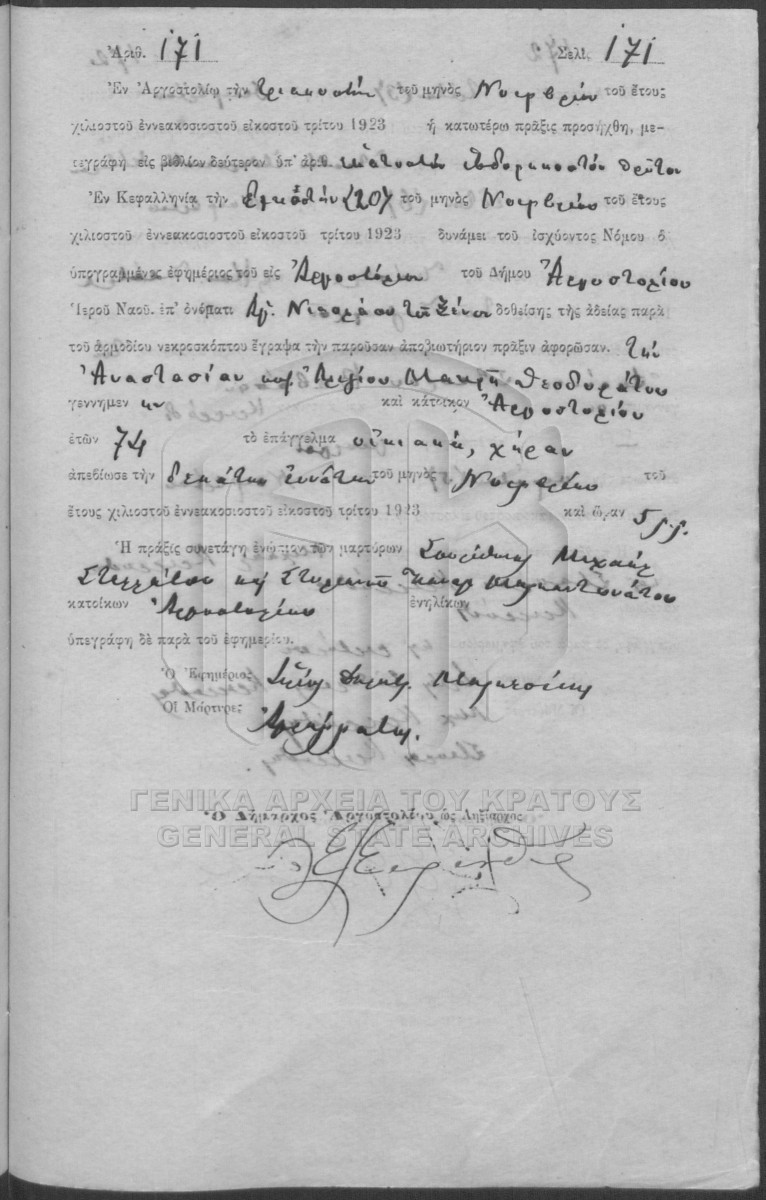 Ἀριθ. 171 Σελ. 171
Ἐν Ἀργοστολίῳ τὴν τριακοστὴν τοῦ μηνὸς Νοεμβρίου τοῦ ἔτους
χιλιοστοῦ ἐννεακοσιοστοῦ εἰκοστοῦ τρίτου 1923 ἡ κατωτέρω πρᾶξις προσήχθη, με-
τεγράφη εἰς βιβλίον δεύτερον ὑπ' ἀριθ. ἑκατοστὸν ἑβδομηκοστὸν πρῶτον
Ἐν Κεφαλληνίᾳ τὴν Εἰκοστὴν (20) τοῦ μηνὸς Νοεμβρίου τοῦ ἔτους
χιλιοστοῦ ἐννεακοσιοστοῦ εἰκοστοῦ τρίτου 1923 δυνάμει τοῦ ἰσχύοντος Νόμου ὁ
ὑπογραμμένος ἐφημέριος τοῦ εἰς Ἀργοστόλιον τοῦ Δήμου Ἀργοστολίου
Ἱεροῦ Ναοῦ. ἐπ' ὀνόματι Ἁγ. Νικολάου τῶν Ξένων δοθείσης τῆς ἀδείας παρὰ
τοῦ ἁρμοδίου νεκροσκόπτου ἔγραψα τὴν παροῦσαν ἀποβιωτήριον πρᾶξιν ἀφορῶσαν. τὴν
Ἀναστασίαν Θεοδωράτου
γεννημεν ην καὶ κάτοικον Ἀργοστολίου
ἐτῶν 74 τὸ ἐπάγγελμα οἰκιακά, χήραν
ἀπεβίωσε τὴν δεκάτην ἐννάτην τοῦ μηνὸς Νοεμβρίου τοῦ
ἔτους χιλιοστοῦ ἐννεακοσιοστοῦ εἰκοστοῦ τρίτου 1923 καὶ ὥραν 5 μ.μ.
Ἡ πρᾶξις συνετάγη ἐνώπιον τῶν μαρτύρων Σπυρίδωνος Μιχαὴλ
κατοίκων Ἀργοστολίου ἐνηλίκων
ὑπεγράφη δὲ παρὰ τοῦ ἐφημερίου.
Ὁ Ἐφημέριος
Οἱ Μάρτυρες Ἀγράμματοι.
ΓΕΝΙΚΑ ΑΡΧΕΙΑ ΤΟΥ ΚΡΑΤΟΥΣ
Ὁ Δήμαρχος Ἀργοστολίου ὡς Ληξίαρχος
GENERAL STATE ARCHIVES